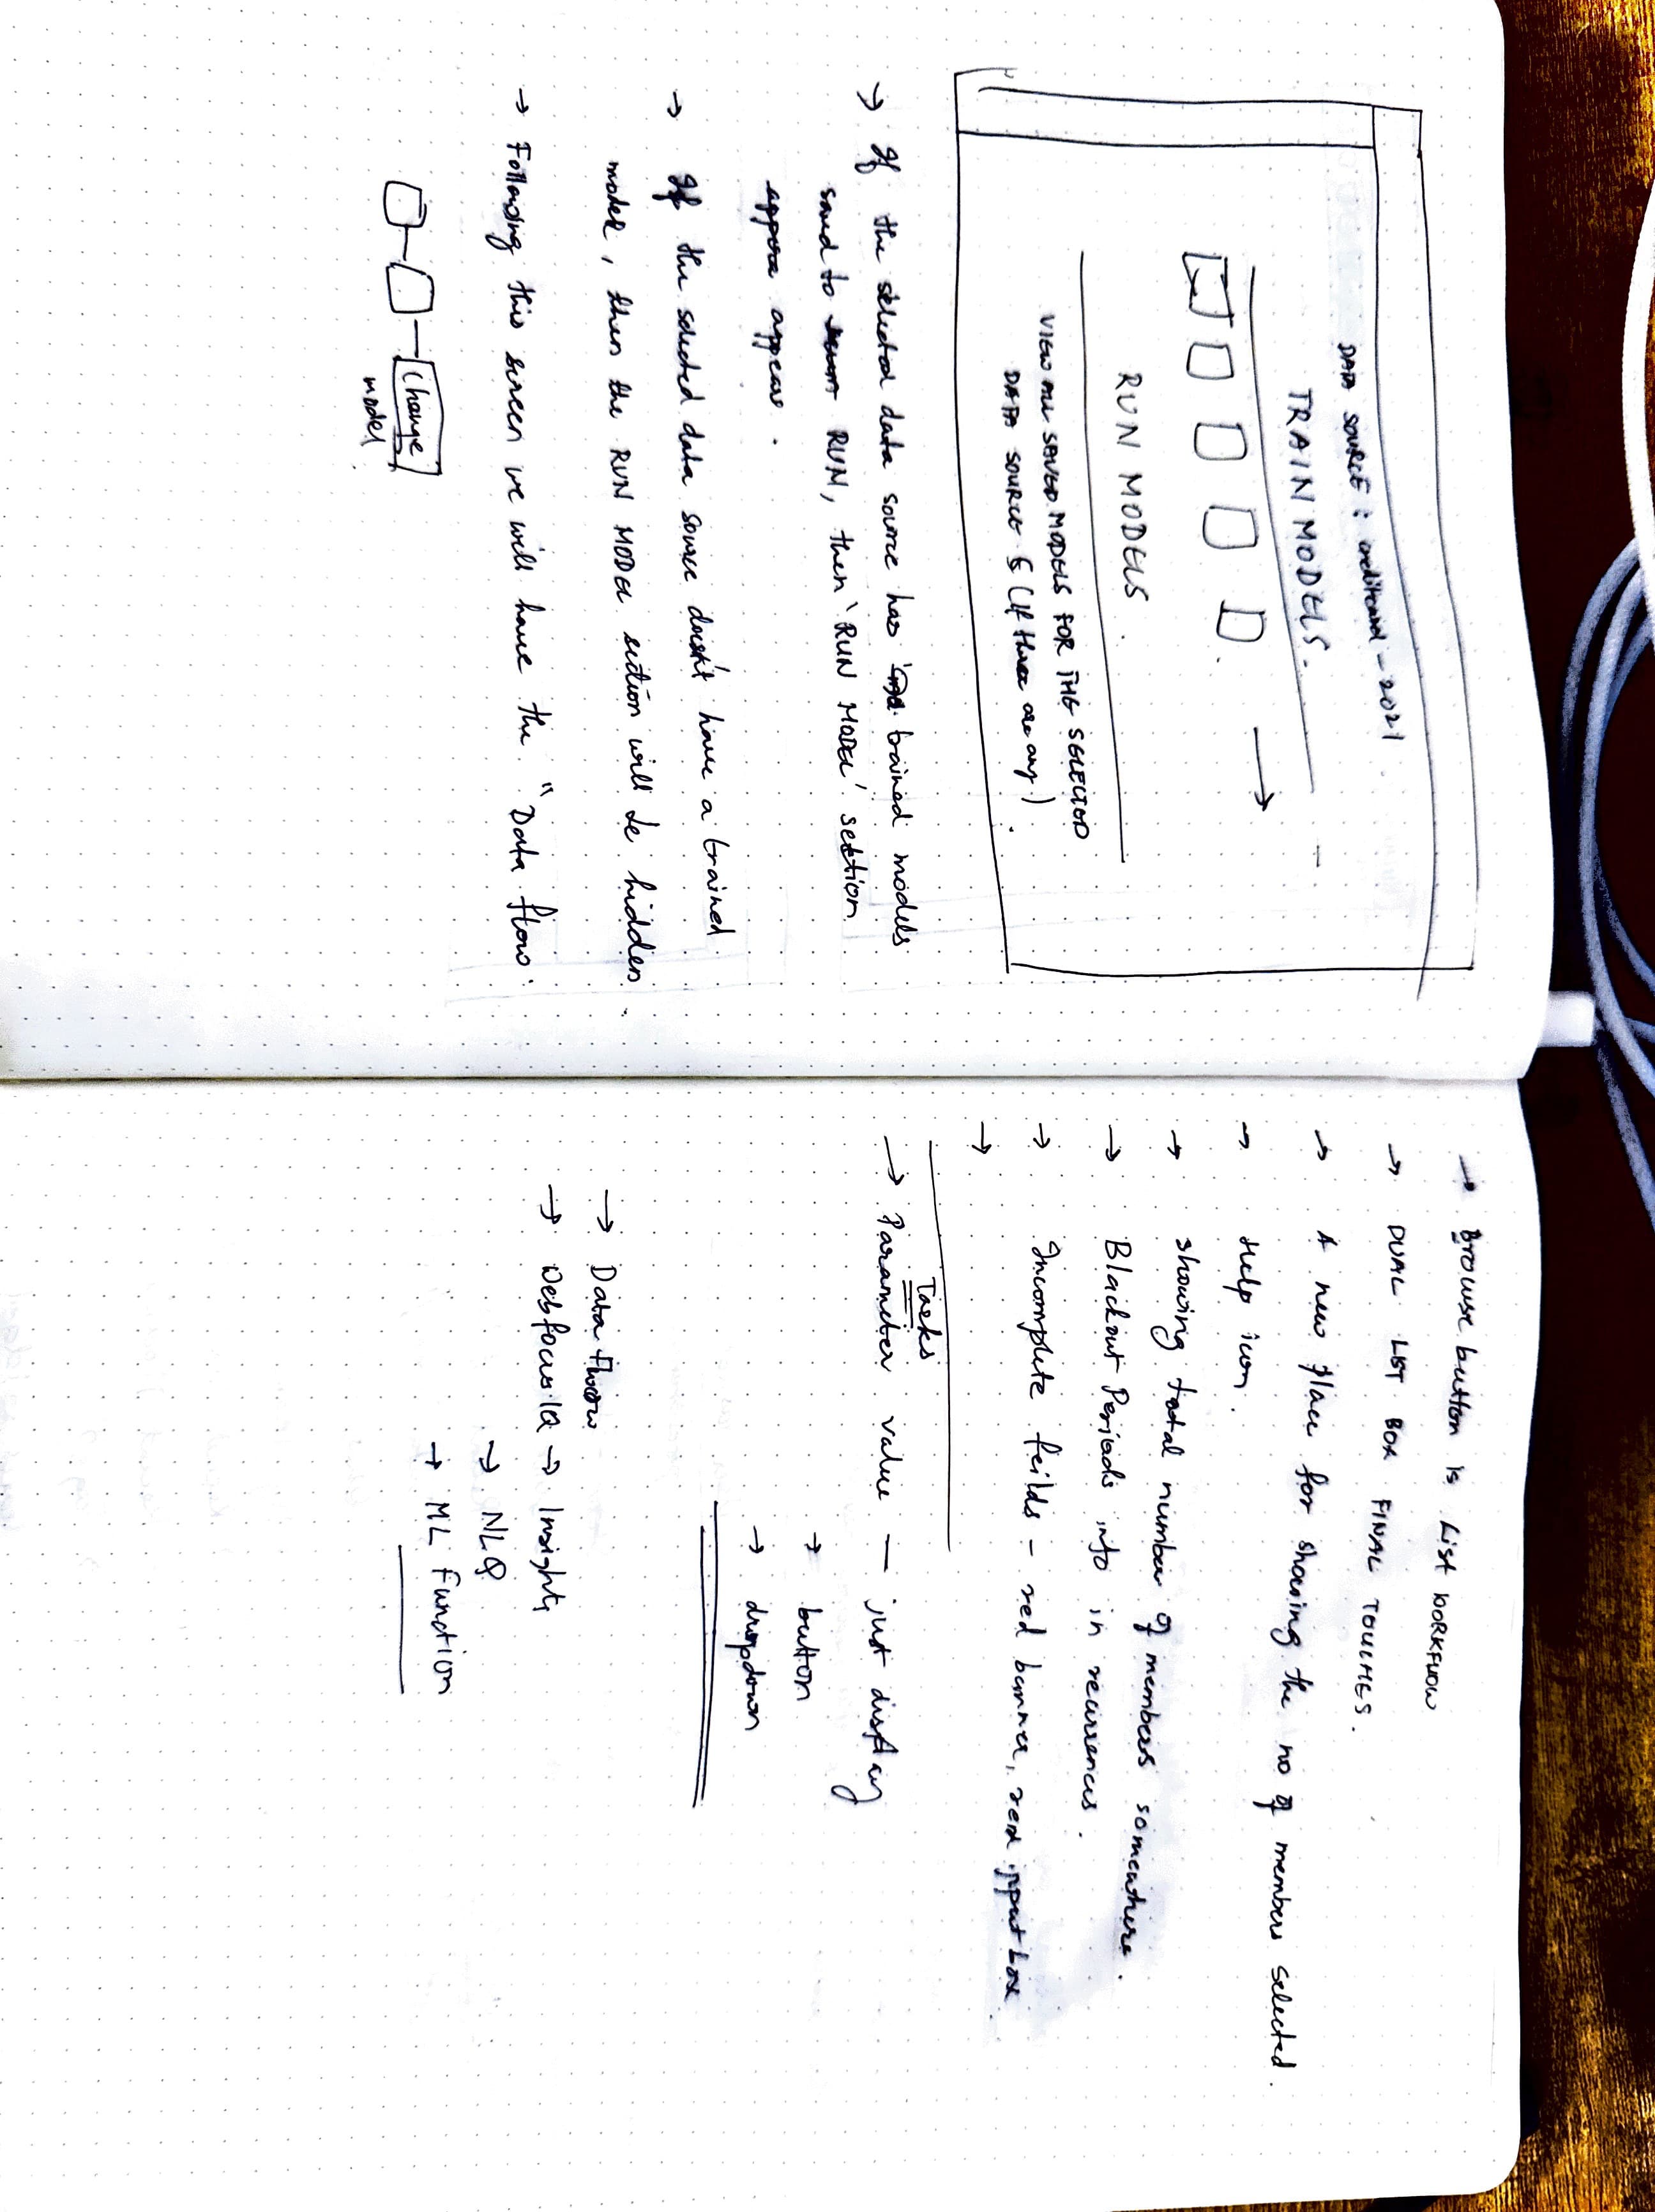 DATA SOURCE : creditcard - 2021
TRAIN MODELS.
RUN MODELS.
VIEW SAVED MODELS FOR THE SELECTED
DATA SOURCE (If there are any).
→ If the selected data source has trained models
saved to RUN, then 'RUN MODEL' section
appears.
→ If the selected data source doesn't have a trained
model, then the RUN MODEL section will be hidden.
→ Following this screen we will have the "Data flow.
Change
model.
→ Browse button is List WORKFLOW
→ DUAL LIST BOX FINAL TOUCHES.
→ A new place for showing the no of members selected.
→ Help icon.
→ showing total number of members somewhere.
→ Blackout Periods info in recurrences.
→ Incomplete feilds - red banner, red input box.
→
Tasks
→ Parameter value — just display
→ button
→ dropdown
→ Data flow
→ Webfocus IQ → Insights
→ NLQ
→ ML Function